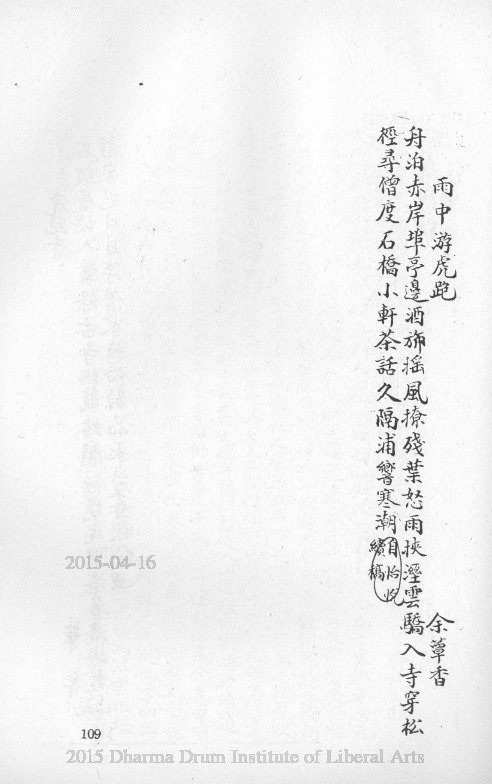 雨中游虎跑 余蕈香
舟泊赤岸埠亭邊酒旆搖風撩殘葉怒雨挾溼雲驕入寺穿松
徑尋僧度石橋小軒茶話久隔浦響寒潮
自怡悅
續稿
2015-04-16
109
2015 Dharma Drum Institute of Liberal Arts